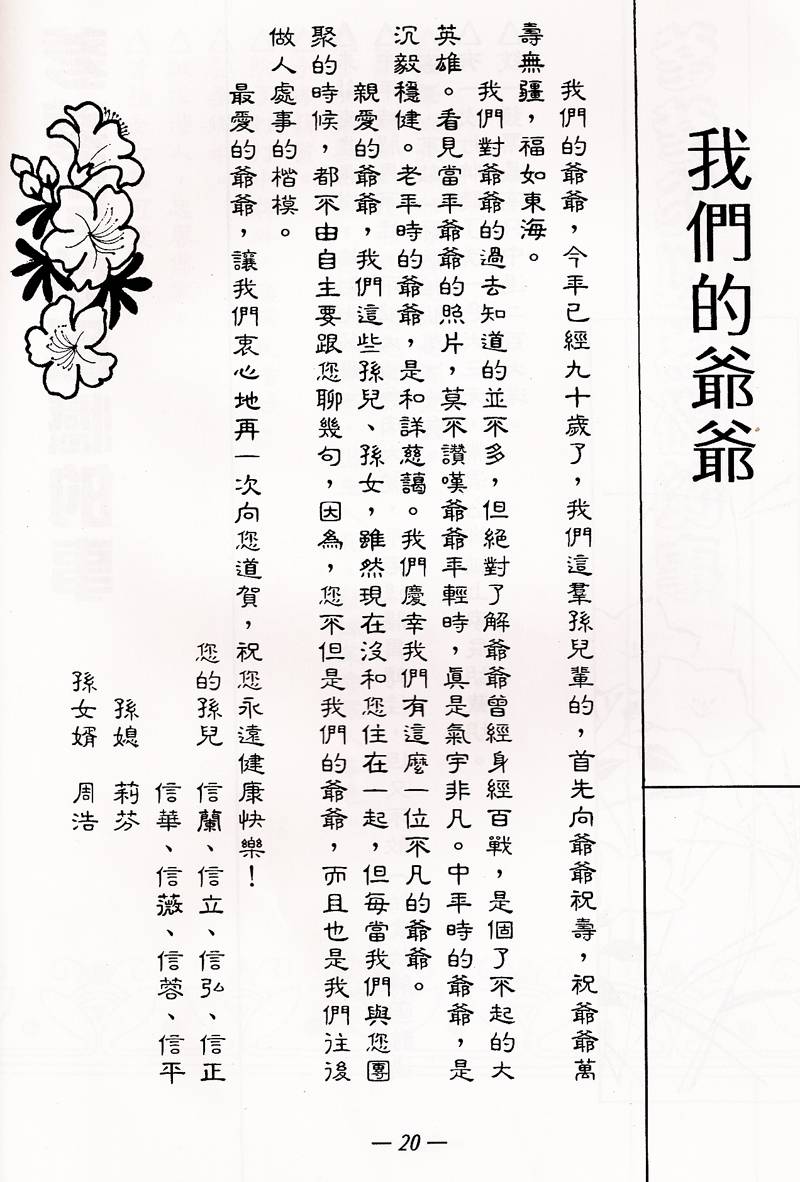 我們的爺爺
我們的爺爺，今年已經九十歲了，我們這羣孫兒輩的，首先向爺爺祝壽，祝爺爺萬
壽無疆，福如東海。
我們對爺爺的過去知道的並不多，但絕對了解爺爺曾經身經百戰，是個了不起的大
英雄。看見當年爺爺的照片，莫不讚嘆爺爺年輕時，眞是氣宇非凡。中年時的爺爺，是
沉毅穩健。老年時的爺爺，是和詳慈藹。我們慶幸我們有這麼一位不凡的爺爺。
親愛的爺爺，我們這些孫兒、孫女，雖然現在沒和您住在一起，但每當我們與您團
聚的時候，都不由自主要跟您聊幾句，因為，您不但是我們的爺爺，而且也是我們往後
做人處事的楷模。
最愛的爺爺，讓我們衷心地再一次向您道賀，祝您永遠健康快樂！
您的孫兒　信蘭、信立、信弘、信正
信華、信薇、信蓉、信平
孫媳　莉芬
孫女婿　周浩
— 20 —